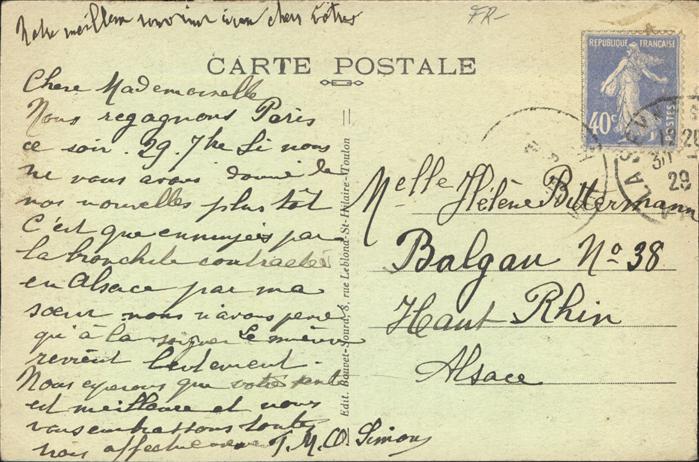 Notre meilleur souvenir à vos chers Vôtres
FR-
CARTE POSTALE
REPUBLIQUE FRANÇAISE
40c
POSTES
29
Chere Mademoiselle
Nous regagnons Paris
ce soir. 29. 7he Si nous
ne vous avons donné de
nos nouvelles plus tôt
C'est que ennuyés par
la bronchite contractée
en Alsace par ma
sœur nous n'avons pensé
qu'à la soigner Le mieux
revient lentement.
Nous esperons que votre santé
est meilleure et nous
vous embrassons toutes
nous affectueusement T. M. Simon
Edit. Bouvet-Sourd, 8, rue Leblond-St-Hilaire-Toulon
Melle Hélène Bittermann
Balgau No 38
Haut Rhin
Alsace